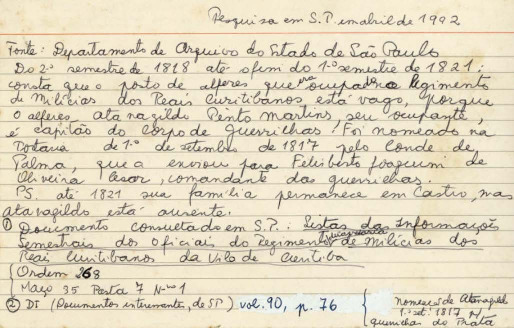 Pesquisa em S.P. em abril de 1992
Fonte: Departamento de Arquivo do Estado de São Paulo
Do 2º semestre de 1818 até o fim do 1º semestre de 1821:
consta que o posto de alferes que era ocupado no Regimento
de Milícias dos Reais Curitibanos, está vago, porque
o alferes Atanagildo Pento Martins, seu ocupante,
é capitão do Corpo de Guerrilhas! Foi nomeado na
Portaria de 1º de setembro de 1817 pelo Conde de
Palma, que a enviou para Felisberto Joaquim de
Oliveira Cesar, comandante das guerrilhas.
PS. até 1821 sua família permanece em Castro, mas
Atanagildo está ausente.
① Documento consultado em S.P.: Listas das Informações
Semestrais dos Oficiais do Regimento de Milícias dos
Reais Curitibanos da Vila de Curitiba
Ordem 268
Maço 35 Pasta 7 Nº 1
② DI (Documentos interessantes, de SP) vol. 90, p. 76
nomeação de Atanagildo
1º set. 1817 p/
guerrilha do Prata